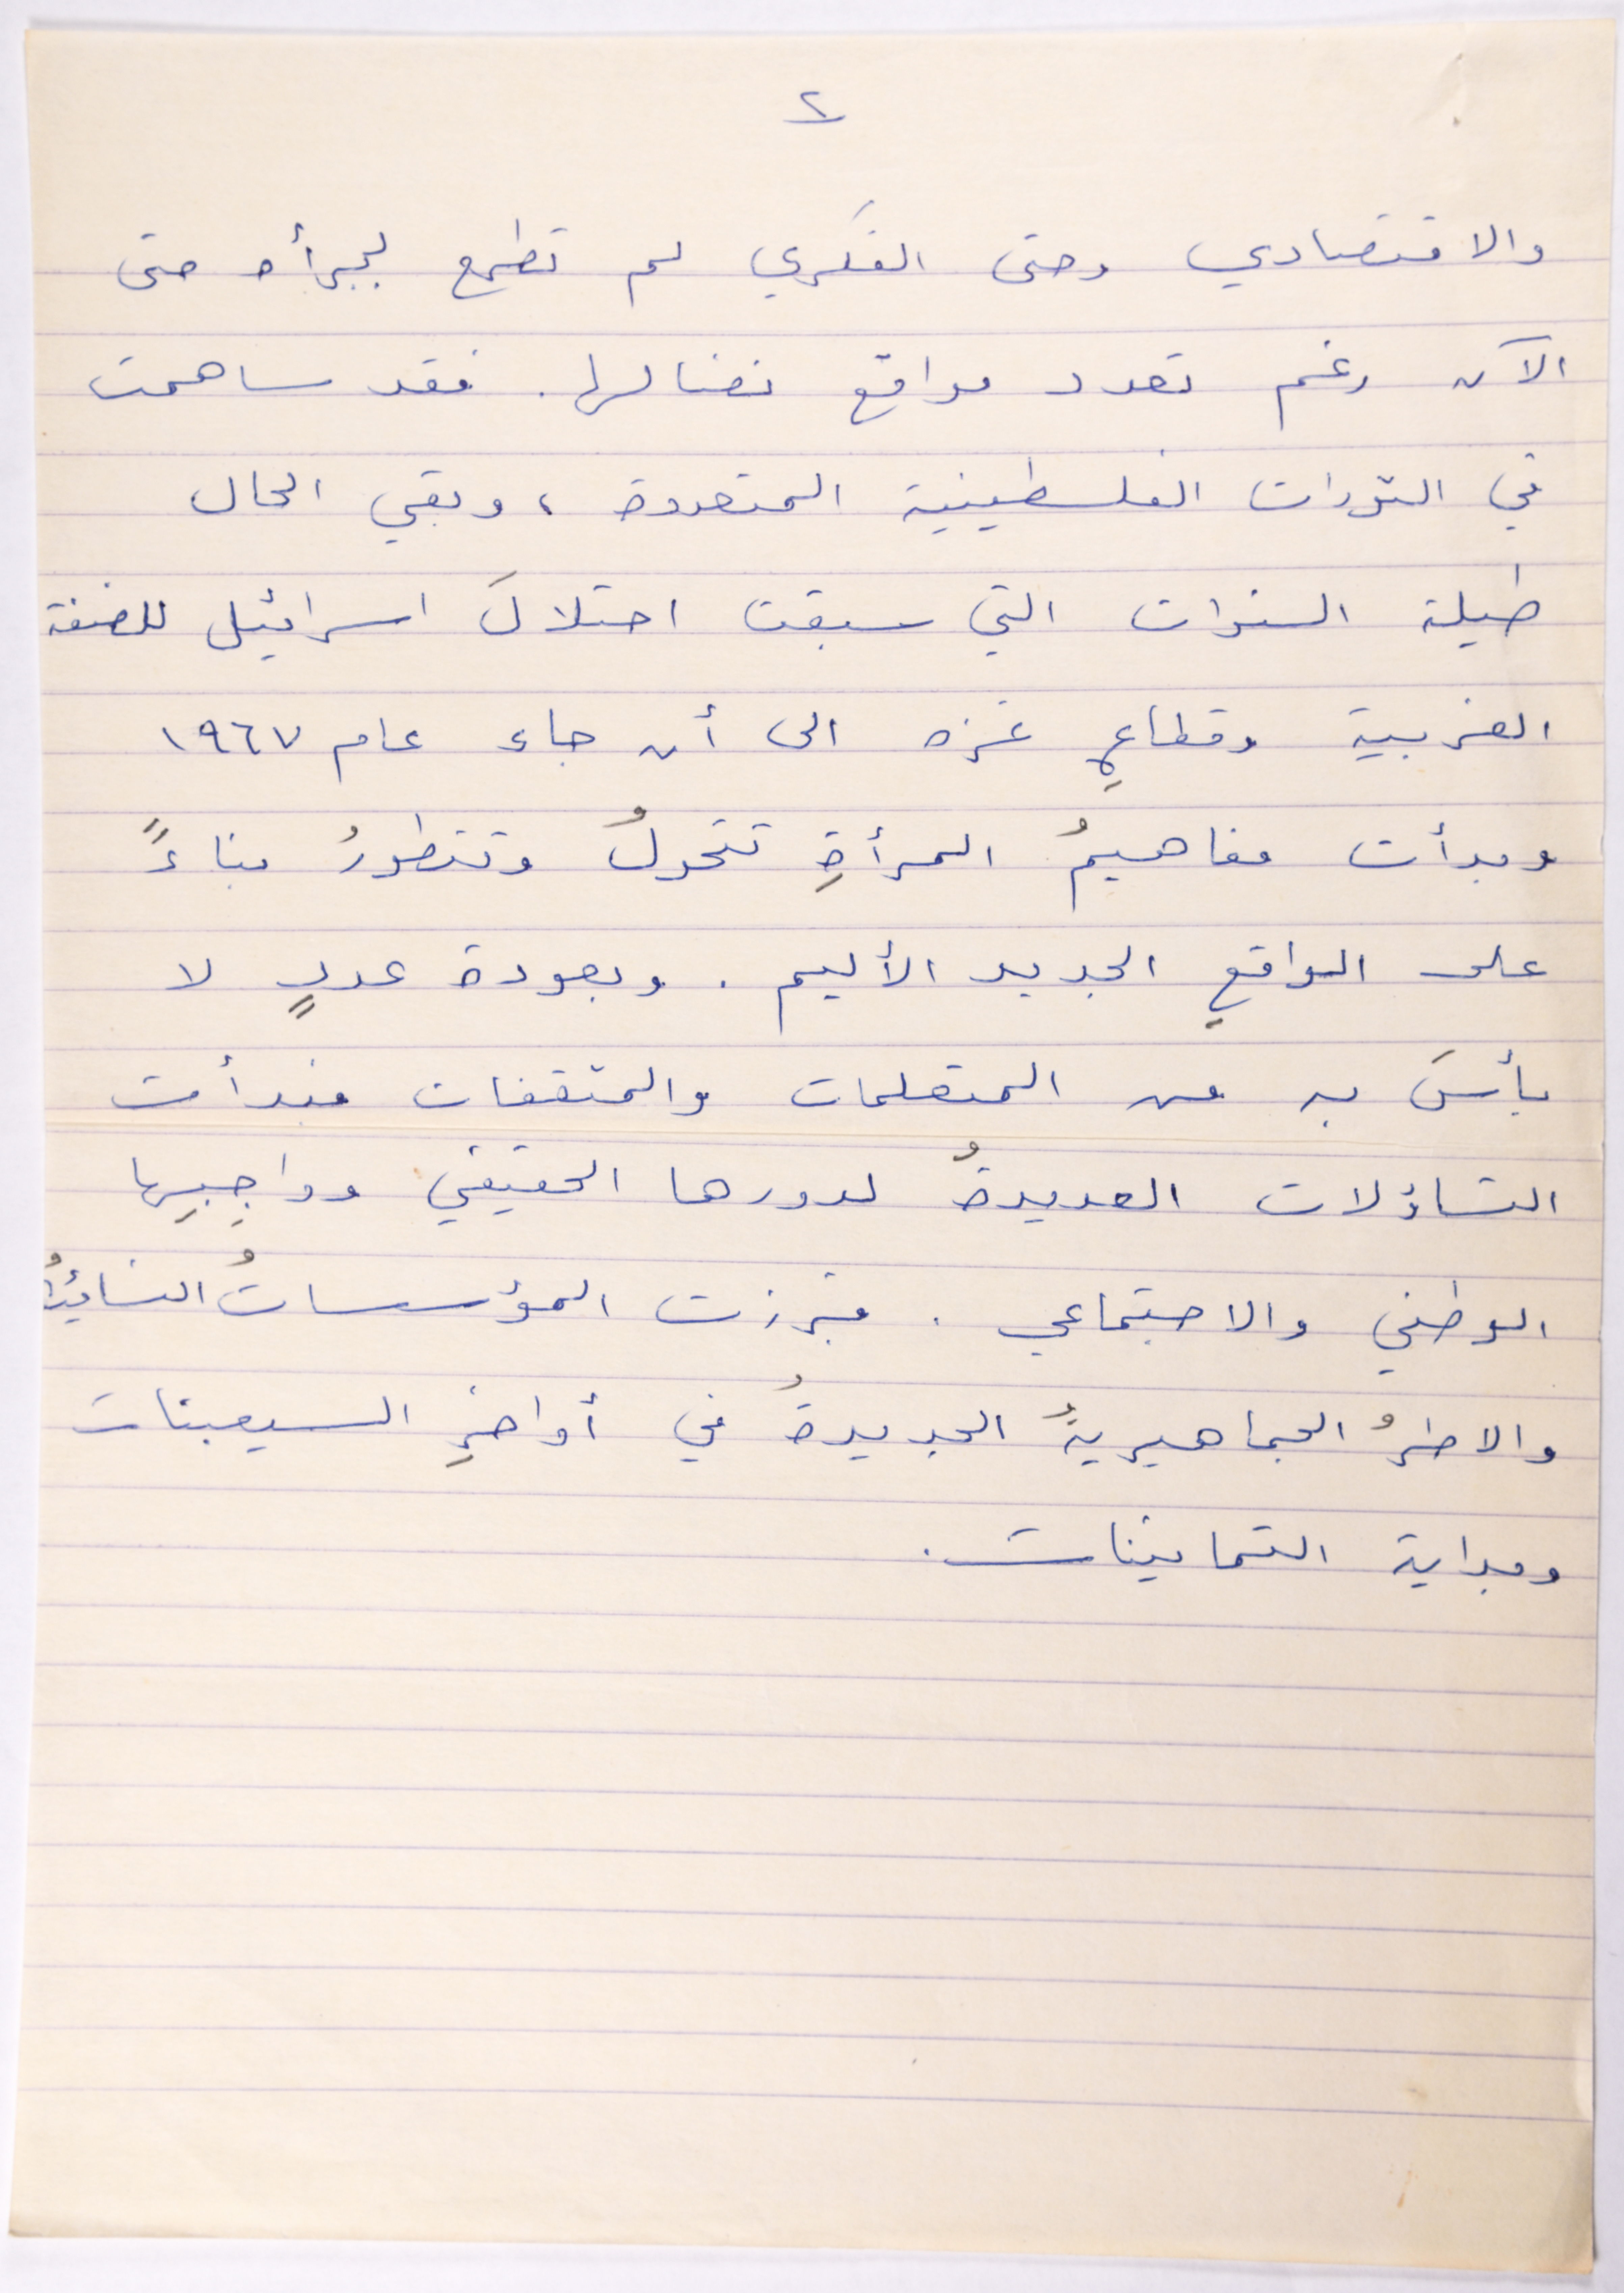 ٢
والاقتصادي وحتى الفكري لم تطمع بجرأه حتى
الآن رغم تعدد مواقع نضالها. فقد ساهمت
في الثورات الفلسطينية المتعددة ، وبقي الحال
طيلة السنوات التي سبقت احتلالَ اسرائيل للضفة
الغربية وقطاعِ غزه الى أن جاء عام ١٩٦٧
وبدأت مفاهيمُ المرأةِ تتحولُ وتتطورُ بناءً
على الواقعِ الجديد الأليم . وبعودة عددٍ لا
بأسَ به من المتعلمات والمثقفات فبدأت
التساؤلات العديدةُ لدورها الحقيقي وواجِبِها
الوطني والاجتماعي . فبرزت المؤسساتُ النسائيةُ
والاطرُ الجماهيريةُ الجديدةُ في أواخرِ السبعينات
وبداية الثمانينات .